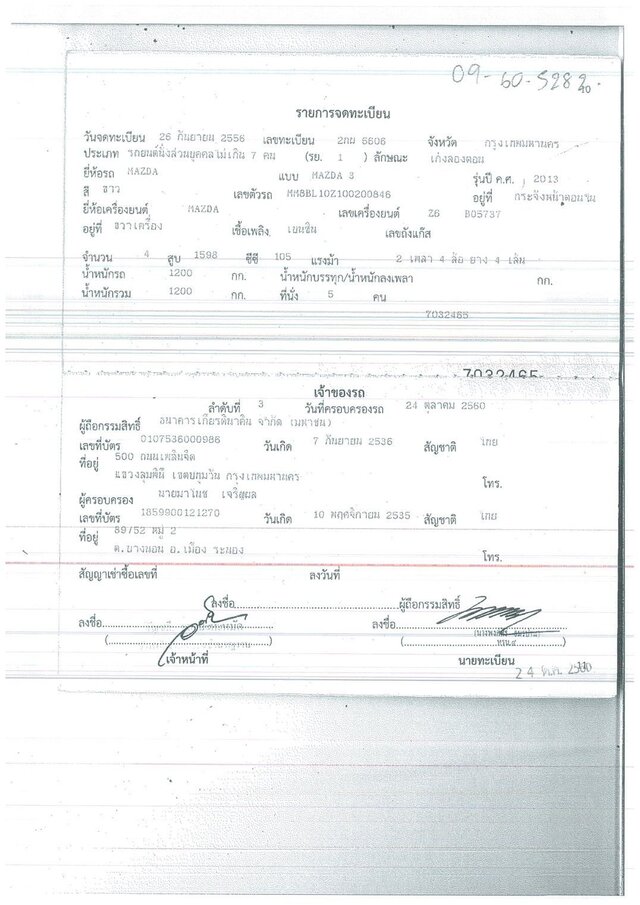 09-60-5282
10
รายการจดทะเบียน
วันจดทะเบียน 26 กันยายน 2556 เลขทะเบียน 2กม 6606 จังหวัด กรุงเทพมหานคร
ประเภท รถยนต์นั่งส่วนบุคคลไม่เกิน 7 คน (รย. 1 ) ลักษณะ เก๋งสองตอน
ยี่ห้อรถ MAZDA แบบ MAZDA 3 รุ่นปี ค.ศ. 2013
สี ขาว เลขตัวรถ MM8BL10Z100200846 อยู่ที่ กระจังหน้าตอนใน
ยี่ห้อเครื่องยนต์ MAZDA เลขเครื่องยนต์ Z6 B05737
อยู่ที่ ขวาเครื่อง เชื้อเพลิง เบนซิน เลขถังแก๊ส
จำนวน 4 สูบ 1598 ซีซี 105 แรงม้า 2 เพลา 4 ล้อ ยาง 4 เส้น
น้ำหนักรถ 1200 กก. น้ำหนักบรรทุก/น้ำหนักลงเพลา กก.
น้ำหนักรวม 1200 กก. ที่นั่ง 5 คน
7032465
7032465
เจ้าของรถ
ลำดับที่ 3 วันที่ครอบครองรถ 24 ตุลาคม 2560
ผู้ถือกรรมสิทธิ์ ธนาคารเกียรตินาคิน จำกัด (มหาชน)
เลขที่บัตร 0107536000986 วันเกิด 7 กันยายน 2536 สัญชาติ ไทย
ที่อยู่ 500 ถนนเพลินจิต
แขวงลุมพินี เขตปทุมวัน กรุงเทพมหานคร
โทร.
ผู้ครอบครอง นายมาโนช เจริสุผล
เลขที่บัตร 1859900121270 วันเกิด 10 พฤศจิกายน 2535 สัญชาติ ไทย
ที่อยู่ 89/52 หมู่ 2
ต.บางนอน อ.เมือง ระนอง
โทร.
สัญญาเช่าซื้อเลขที่ ลงวันที่
ลงชื่อ ผู้ถือกรรมสิทธิ์
ลงชื่อ ลงชื่อ
( ) ( )
เจ้าหน้าที่ นายทะเบียน
24 ต.ค. 2560
11